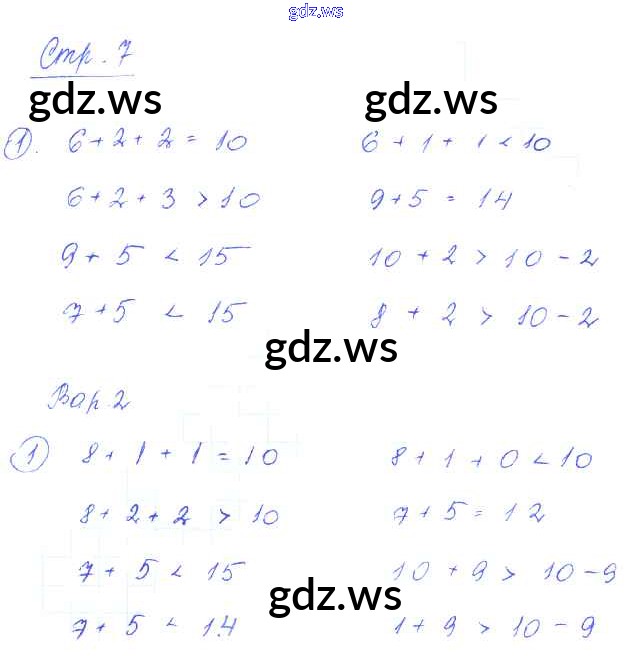 gdz.ws
Стр. 7
gdz.ws gdz.ws
1. 6+2+2 = 10 6+1+1<10
6+2+3 >10 9+5 = 14
9+ 5 < 15 10+2 > 10-2
7+5 < 15 8 + 2 > 10-2
gdz.ws
Вар. 2
1 8+1+1=10 8+1+0<10
8+2+2 > 10 7+5=12
7+ 5 < 15 10 +9 > 10-9
gdz.ws
7+ 5 < 14 1+9 > 10-9